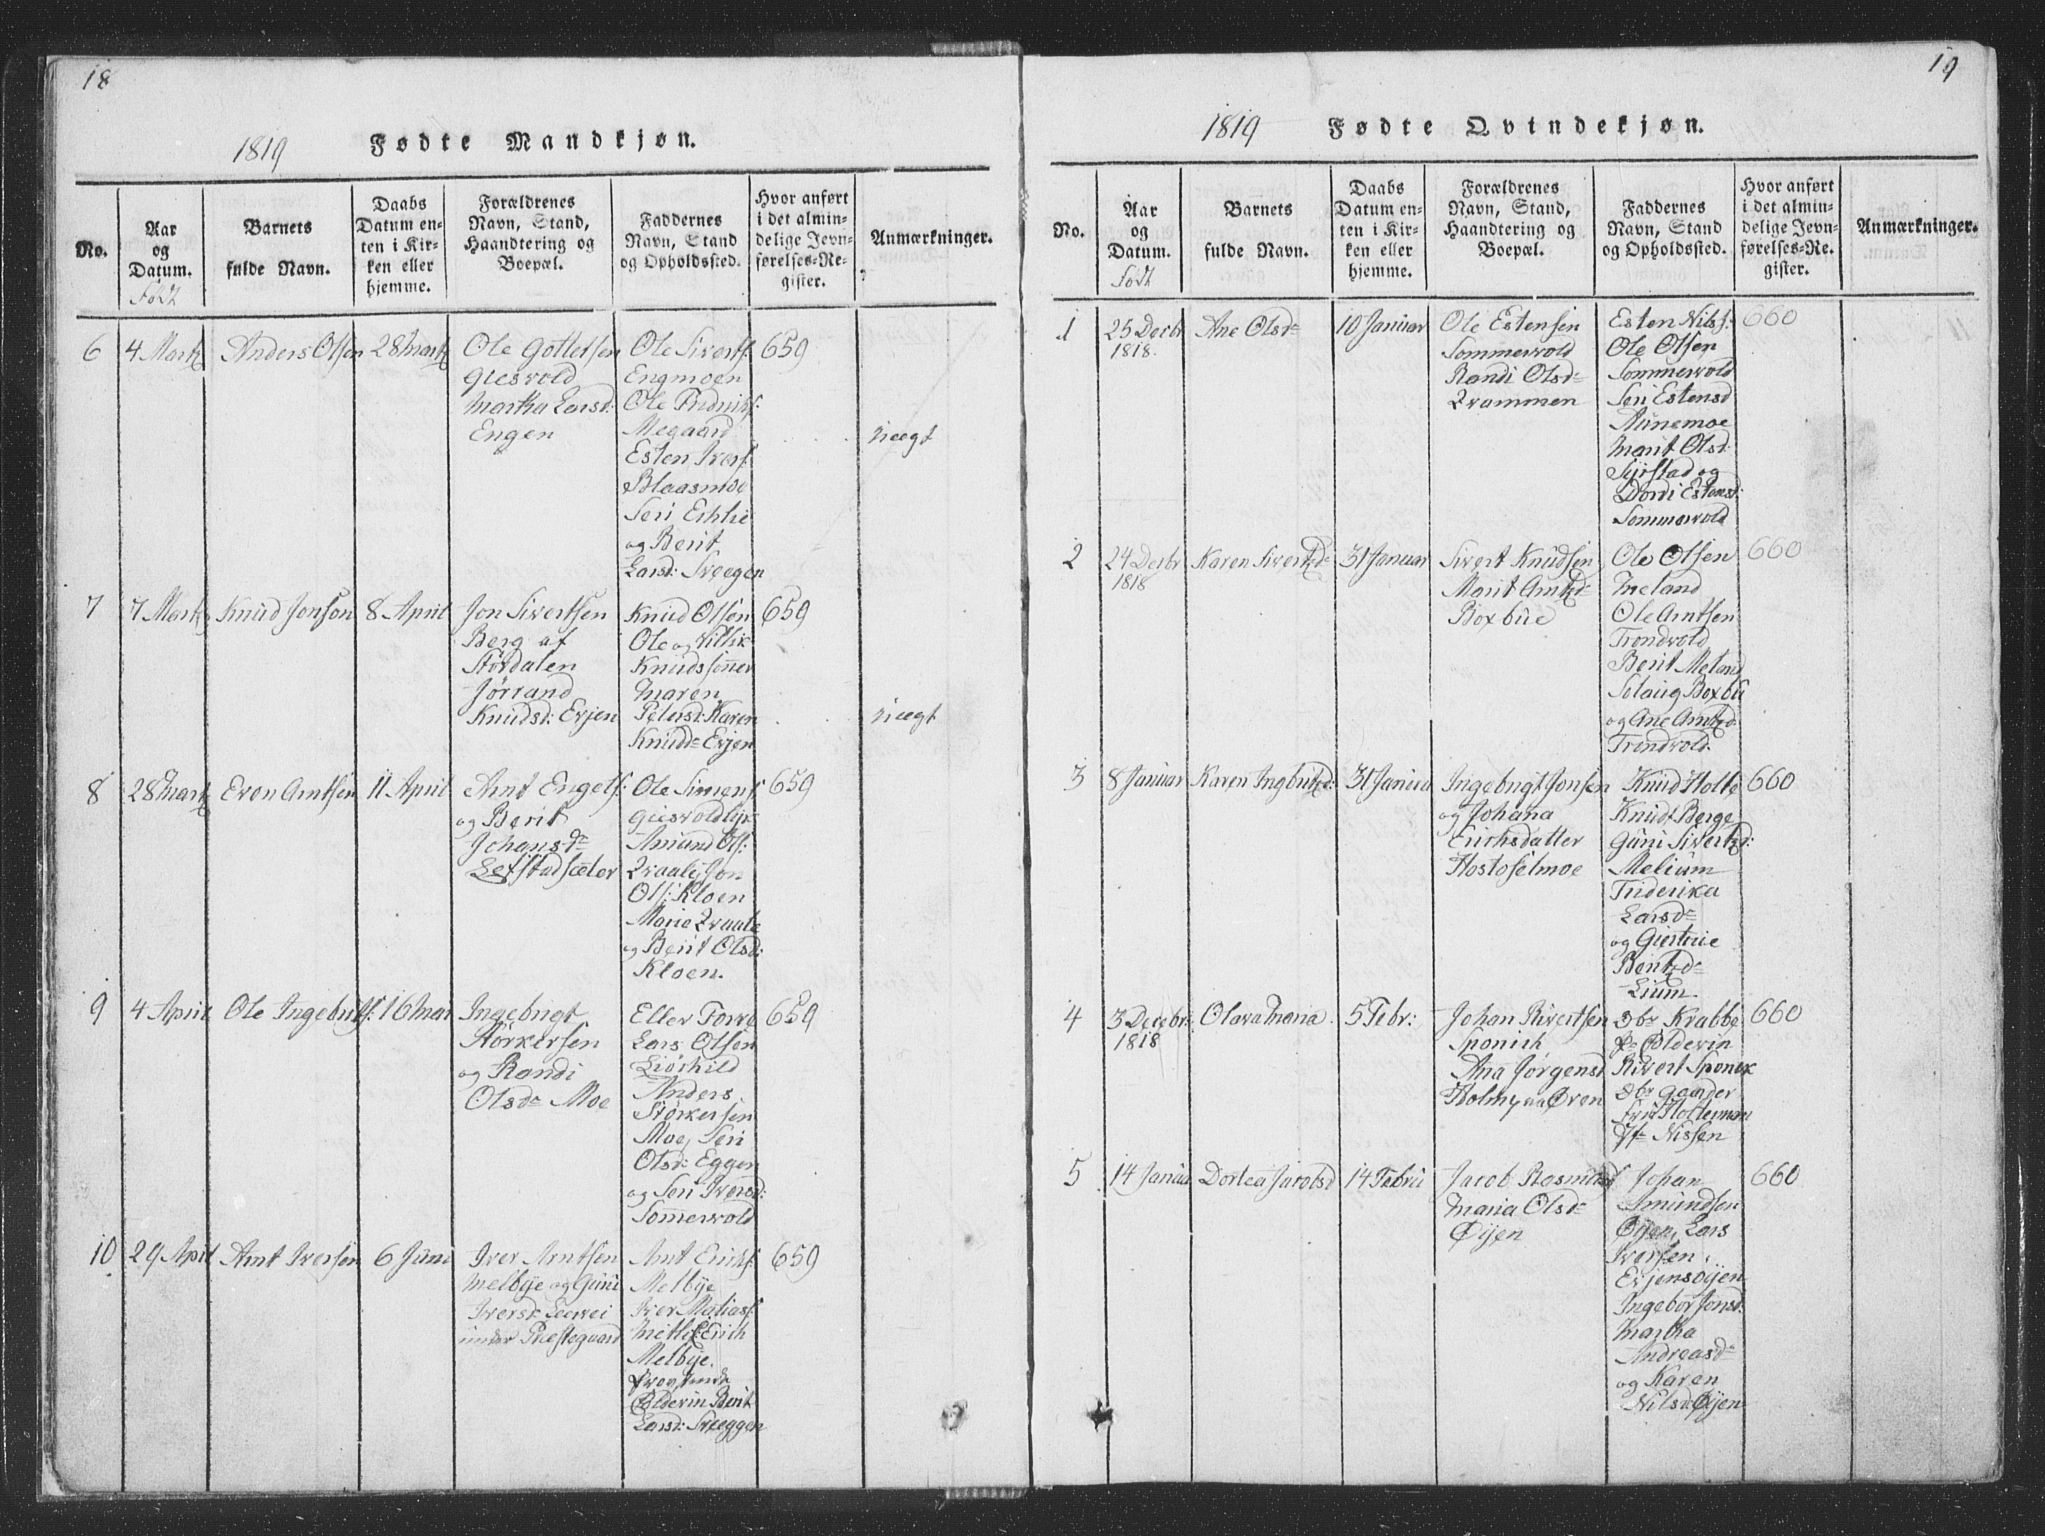 18
1819 Fødte Mandkjøn.
No.
Aar og Datum.
Født
Barnets fulde Navn.
Daabs Datum enten i Kirken eller hjemme.
Forældrenes Navn, Stand, Haandtering og Boepæl.
Faddernes Navn, Stand og Opholdssted.
Hvor anført i det almindelige Jevnførelses-Register.
Anmærkninger.
6
4 Martz
Anders Olsen
28 Martz
Ole Gottelsen
Giesvold
Martha Larsd:
Engen
Ole Sivertz:
Engmoen
Ole
Megaard
Esten Ivers:
Blaasmoe
Seri
og Berit
Larsd: Sveegen
659
Neegt
7
7 Martz
Knud Jonson
8 April
Jon Sivertsen
Berg af
Størdalen
Jørrand
Knudsd: Evjen
Knud Olsen
Ole og
Knudssønner
Maren
Petersd: Karen
Knudsd Evjen
659
Neegt
8
28 Martz
Even Arntsen
11 April
Arnt Engels:
og Berit
Johansdr
Lefstadsæter
Ole Simens:
Giesvold
Amund Ols:
Ols: Kloen
Marie
og Berit Olsd:
Kloen.
659
9
4 April
Ole Ingebrigts:
16 Mai
Ingebrigt
Størkersen
og Randi
Olsdr Moe
Eller Forve
Lars Olsen
Anders
Størkersen
Moe, Seri
Olsd: Eggen
og Seri Iversd:
Sommervold
659
10
29 April
Arnt Iversen
6 Juni
Iver Arntsen
Melbye og Guni
Iversd:
under Prestegaard
Arnt Erichs:
Melbye
Iver Matias:
Erich
Melbye.
Berit
Larsd: Sveeggen
659
19
1819 Fødte Qvindekjøn.
No.
Aar og Datum.
Født
Barnets fulde Navn.
Daabs Datum enten i Kirken eller hjemme.
Forældrenes Navn, Stand, Haandtering og Boepæl.
Faddernes Navn, Stand og Opholdssted.
Hvor anført i det almindelige Jevnførelses-Register.
Anmærkninger.
1
25 Decbr
1818.
Ane Olsdr
10 Januar
Ole Estensen
Sommervold
Randi Olsdr
Qvammen
Esten Nils:
Ole Olsen
Sommervold
Seri Estensd
Aunemoe
Marit Olsd:
Syrstad og
Dordi Estensd:
Sommervold
660
2
24 Decbr
1818
Karen Sivertzdr
31 Januar
Sivert Knudsen
Marit Arntzdr
Boxbue
Ole Olsen
Meland
Ole Arntsen
Trondvold
Berit Meland
Solaug Boxbu
og Ane Arntzd
Trondvold.
660
3
8 Januar
Karen Ingbrigtzd:
31 Januar
Ingebrigt Jonsen
og Johana
Erichsdatter
Hostoselmoe
Knud Holte
Knud Berge
Guni Sivertzd:
Melium
Friderika
Larsdr
og Giertrue
Bentzdr
Lium.
660
4
3 Decebr:
1818
Olava Maria
5 Febr:
Johan Sivertsen
Ana Jørgensd
Holmy Øren
Krabbe
660
5
14 Januar
Dortea Jacobsd
14 Febru
Jacob Rasmus
Maria Olsdr
Øijen
Johan
Amundsen
Øijen, Lars
Iversen
Evjensøijen
Ingebor Jonsd:
Martha
Andreasdr
og Karen
Nilsd Øijen
660